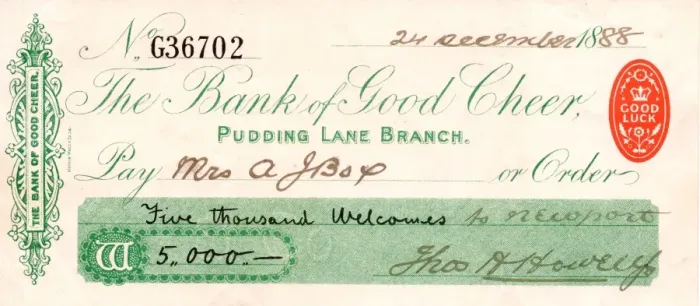 THE BANK OF GOOD CHEER.
No. G36702
24 December 1888
The Bank of Good Cheer,
PUDDING LANE BRANCH.
GOOD
LUCK
Pay Mrs A J Box or Order
Five thousand Welcomes to Newport
W 5,,000.—
Thos H Howells